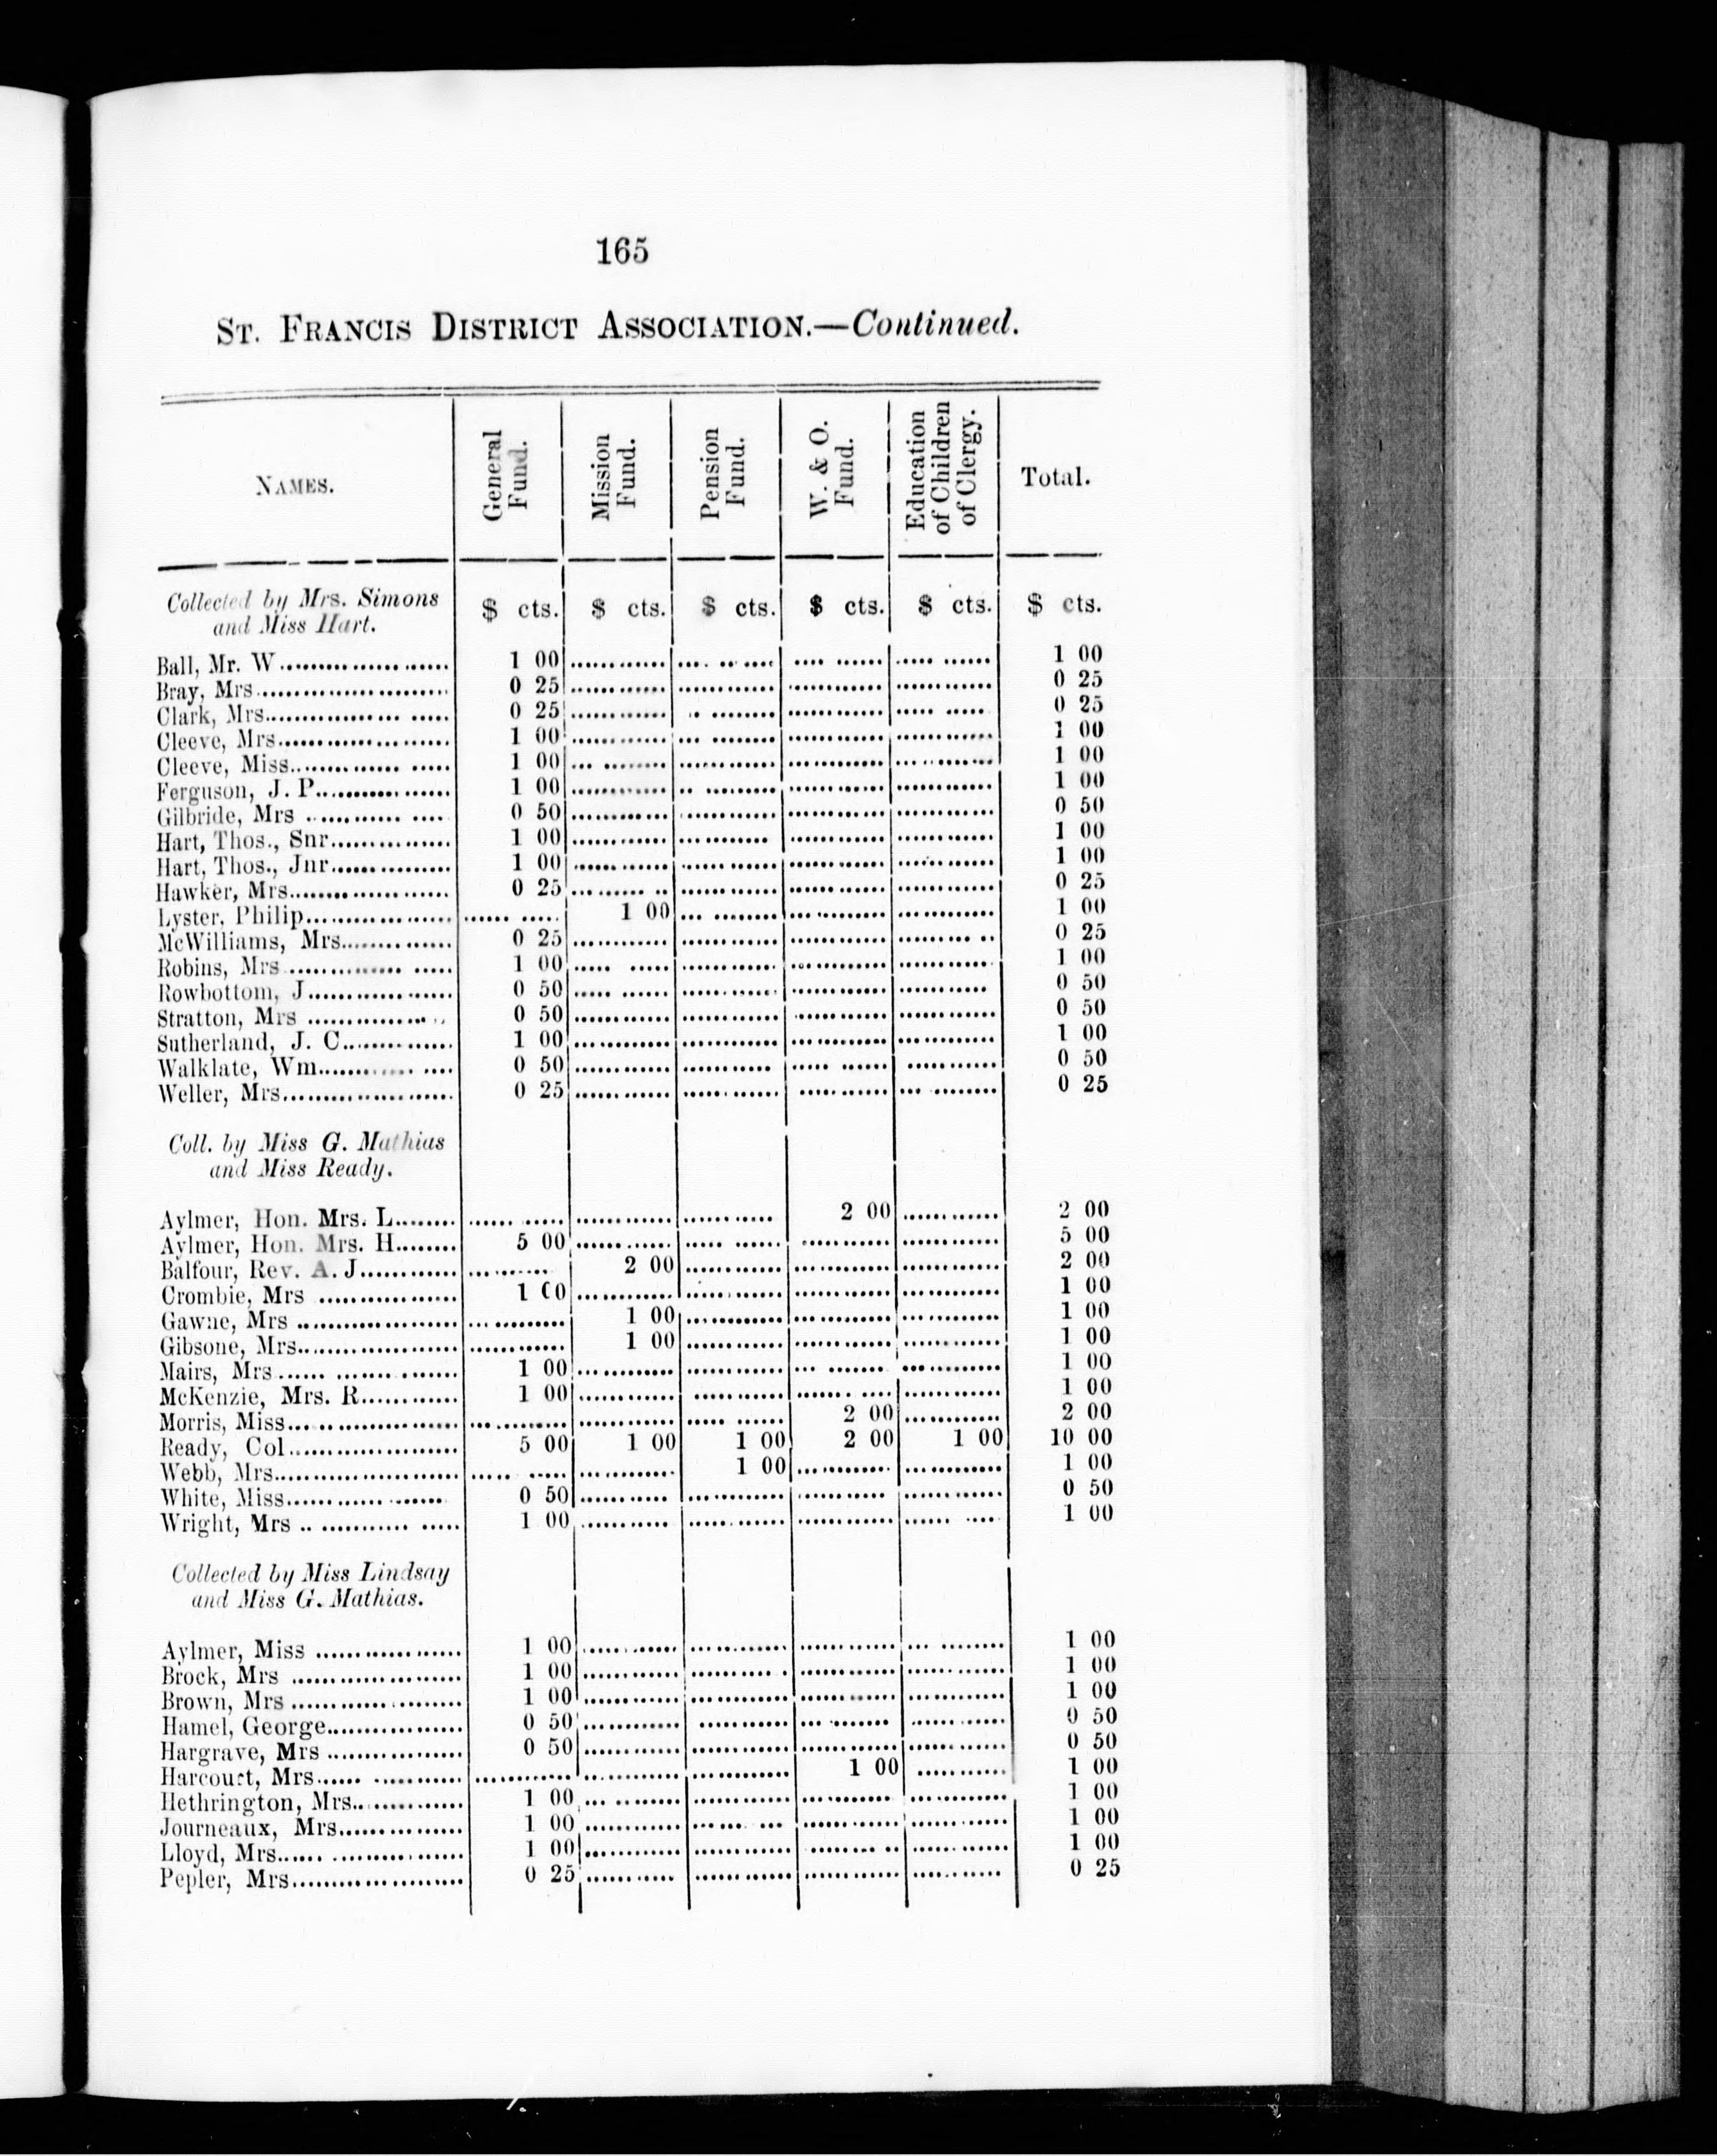 165
ST. FRANCIS DISTRICT ASSOCIATION.—Continued.
NAMES. General Fund. Mission Fund. Pension Fund. W. & O. Fund. Education of Children of Clergy. Total.
Collected by Mrs. Simons $ cts. $ cts. $ cts. $ cts. $ cts. $ cts.
and Miss Hart.
Ball, Mr. W 1 00 1 00
Bray, Mrs 0 25 0 25
Clark, Mrs 0 25 0 25
Cleeve, Mrs 1 00 1 00
Cleeve, Miss 1 00 1 00
Ferguson, J. P 1 00 1 00
Gilbride, Mrs 0 50 0 50
Hart, Thos., Snr 1 00 1 00
Hart, Thos., Jnr 1 00 1 00
Hawker, Mrs 0 25 0 25
Lyster, Philip 1 00 1 00
McWilliams, Mrs 0 25 0 25
Robins, Mrs 1 00 1 00
Rowbottom, J 0 50 0 50
Stratton, Mrs 0 50 0 50
Sutherland, J. C 1 00 1 00
Walklate, Wm 0 50 0 50
Weller, Mrs 0 25 0 25
Coll. by Miss G. Mathias
and Miss Ready.
Aylmer, Hon. Mrs. L 2 00 2 00
Aylmer, Hon. Mrs. H 5 00 5 00
Balfour, Rev. A. J 2 00 2 00
Crombie, Mrs 1 00 1 00
Gawne, Mrs 1 00 1 00
Gibsone, Mrs 1 00 1 00
Mairs, Mrs 1 00 1 00
McKenzie, Mrs. R 1 00 1 00
Morris, Miss 2 00 2 00
Ready, Col 5 00 1 00 1 00 2 00 1 00 10 00
Webb, Mrs 1 00 1 00
White, Miss 0 50 0 50
Wright, Mrs 1 00 1 00
Collected by Miss Lindsay
and Miss G. Mathias.
Aylmer, Miss 1 00 1 00
Brock, Mrs 1 00 1 00
Brown, Mrs 1 00 1 00
Hamel, George 0 50 0 50
Hargrave, Mrs 0 50 0 50
Harcourt, Mrs 1 00 1 00
Hethrington, Mrs 1 00 1 00
Journeaux, Mrs 1 00 1 00
Lloyd, Mrs 1 00 1 00
Pepler, Mrs 0 25 0 25